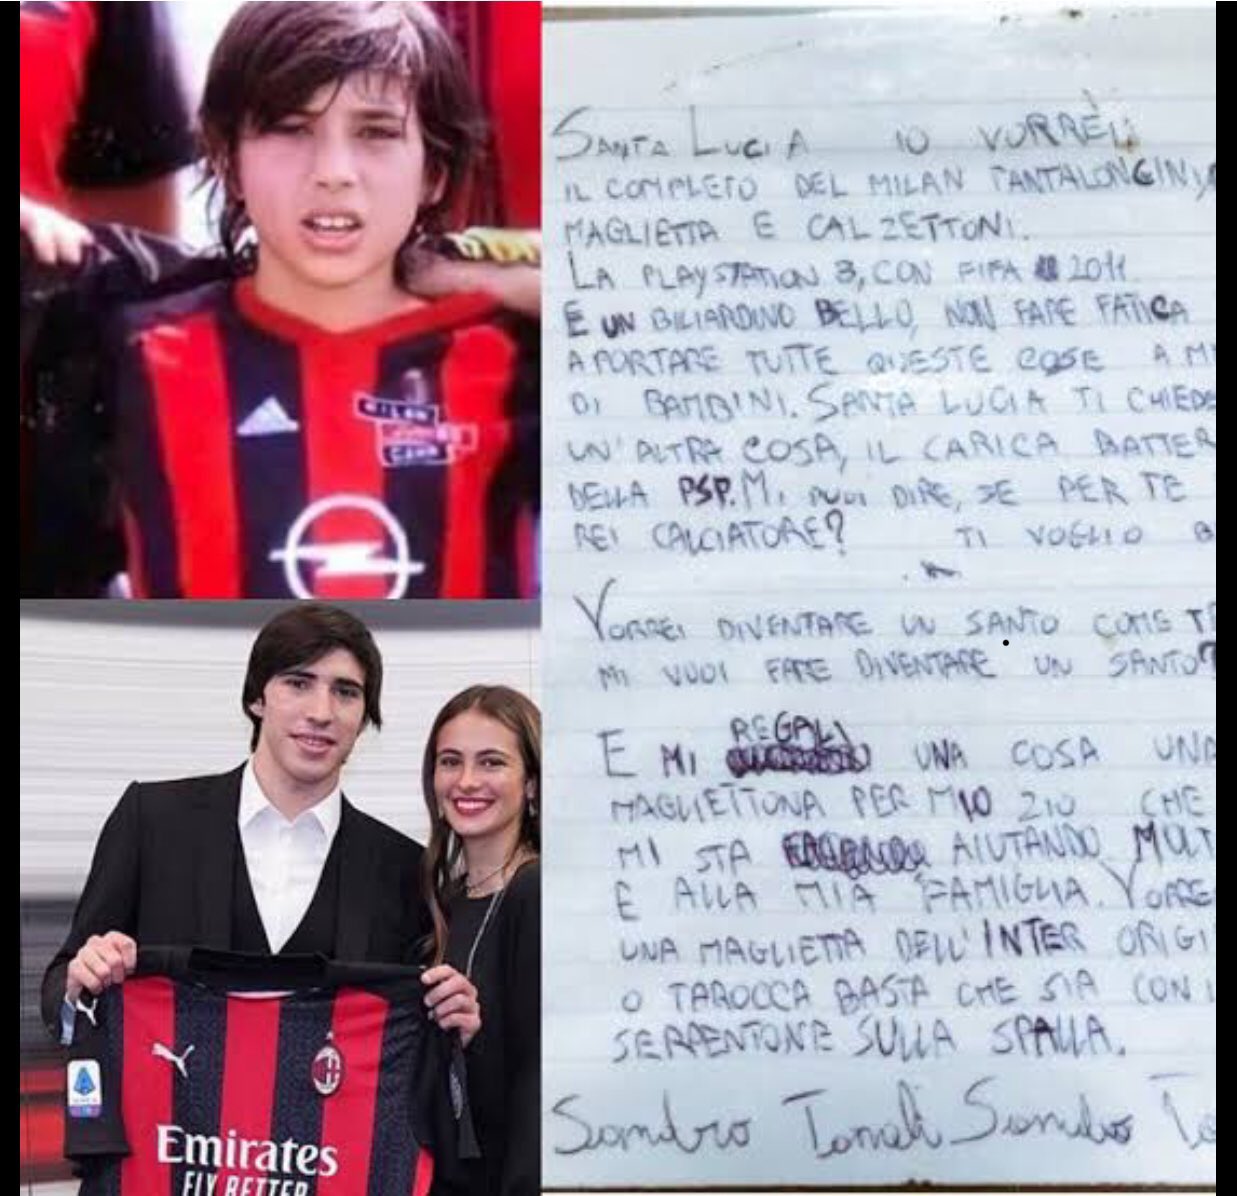 SANTA LUCIA IO VORREI
IL COMPLETO DEL MILAN PANTALONCINI,
MAGLIETTA E CALZETTONI.
LA PLAYSTATION 3, CON FIFA 2011
E UN BILIARDINO BELLO, NON FARE FATICA
A PORTARE TUTTE QUESTE COSE A MI
DI BAMBINI. SANTA LUCIA TI CHIEDE
UN'ALTRA COSA, IL CARICA BATTER
DELLA PSP. MI PUOI DIRE, SE PER TE
REI CALCIATORE? TI VOGLIO B
VORREI DIVENTARE UN SANTO COME TE
MI VUOI FARE DIVENTARE UN SANTO?
E MI REGALI UNA COSA UNA
MAGLIETTONA PER MIO ZIO CHE
MI STA AIUTANDO MOLT
E ALLA MIA FAMIGLIA. VORRE
UNA MAGLIETTA DELL'INTER ORIGI
O TAROCCA BASTA CHE SIA CON I
SERPENTONE SULLA SPALLA.
Sandro Tonali Sandro To
Emirates
FLY BETTER